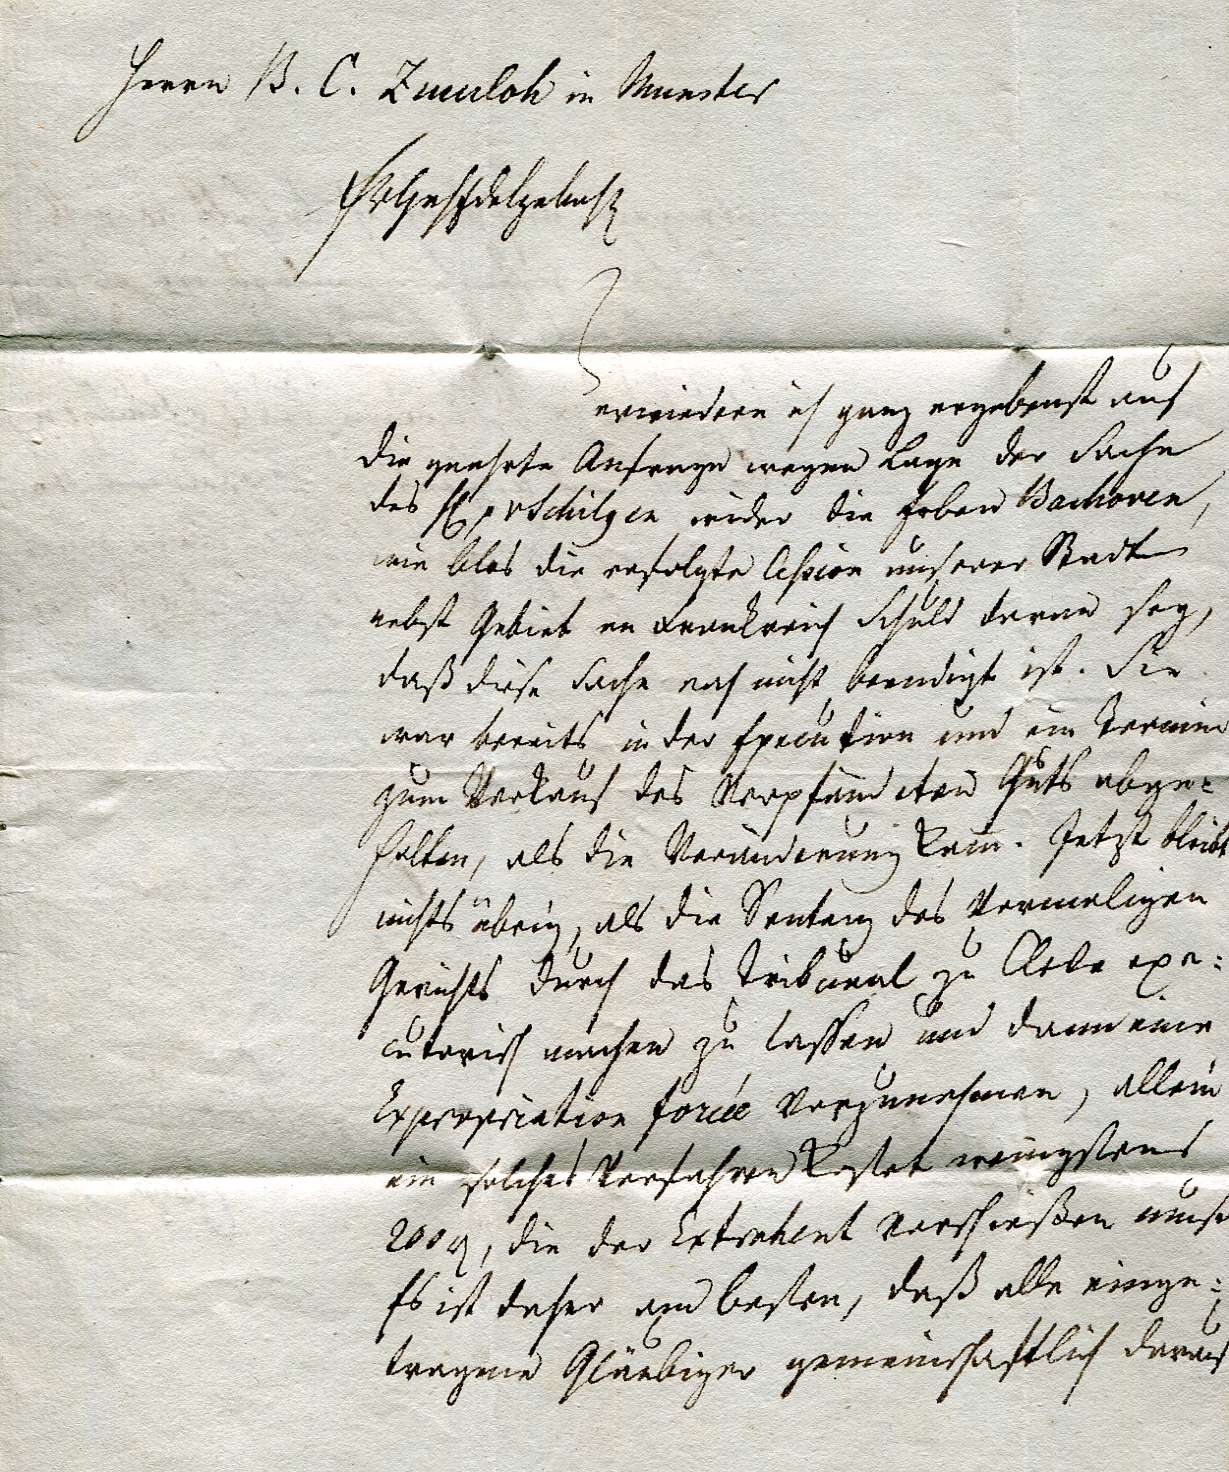 Herrn B. C. Zumloh in Munster
erwiedere ich ganz ergebenst auf
die geehrte Anfrage wegen Lage der Sache
des Schilgen wider die Erben Bachoven,
wie blos die erfolgte Cession unserer Stadt
nebst Gebiet an Frankreich Schuld daran sey,
daß diese Sache noch nicht beendigt ist. Sie
war bereits in der Execution und ein Termin
zum Verkauf des Verpfändeten Guts abge=
halten, als die Veränderung kam. Jetzt bleibt
nichts übrig, als die Sentenz des Vormaligen
Gerichts durch das Tribunal zu Cleve exe=
cutorisch machen zu lassen und dann eine
Expropriation forcée Vorzunehmen, allein
ein solches Verfahren kostet wenigstens
200, die der Extrahent Vorschießen muß
Es ist daher am besten, daß alle einge=
tragene Gläubiger gemeinschaftlich darauf